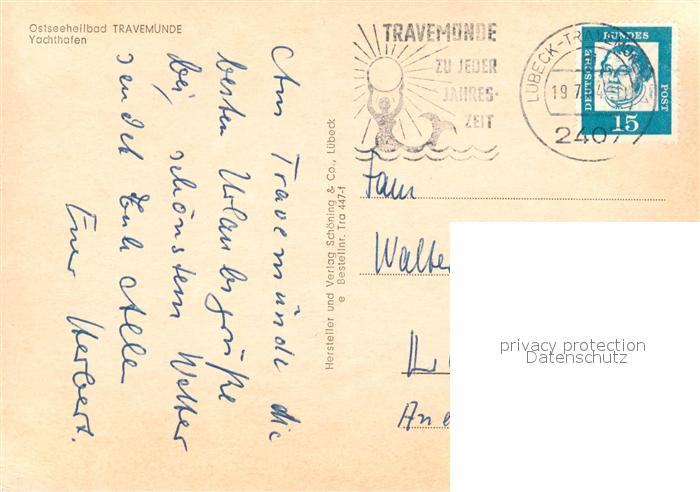 Ostseeheilbad TRAVEMÜNDE
Yachthafen
TRAVEMÜNDE
ZU JEDER
JAHRES-
ZEIT
LÜBECK-TRAVEM
19.7.
2407
DEUTSCHE BUNDES POST
15
Aus Travemünde die
besten Urlaubsgrüße
bei schönstem Wetter
sendet Euch Allen
Euer Herbert.
Hersteller und Verlag Schöning & Co., Lübeck
e Bestellnr. Tra 447-f
Fam
Walter
privacy protection
Datenschutz